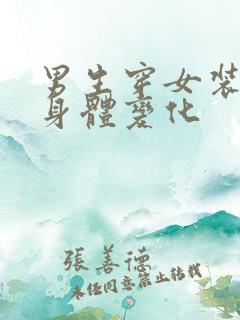 男生穿女装
身體變化
張善德
未经同意禁止转载